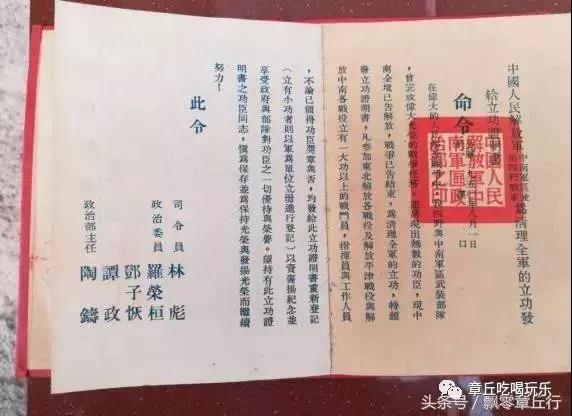 中國人民解放軍 中南軍區 第四野戰軍 爲清理全軍的立功發
給立功證明書
命令 八月一日
在偉大的人民 戰爭中 四野與中南軍區武裝部隊
，曾完成偉大光榮的戰爭任務，並湧現出無數的功臣，現中
南全境已告解放，戰爭已告結束，爲清理全軍的立功，特頒
發立功證明書，凡參加東北解放各戰役及解放平津戰役與解
放中南各戰役立有一大功以上的戰鬥員，指揮員與工作人員
，不論已領得功臣獎章與否，均發給此立功證明書重新登記
（立有小功者則以軍爲單位立冊進行登記）以資褒揚紀念並
享受政府與部隊對功臣之一切優待與榮譽。望持有此立功證
明書之功臣同志，愼爲保存並爲保持光榮與發揚光榮而繼續
努力！
此令
司令員 林彪
政治委員 羅榮桓
鄧子恢
譚政
政治部主任 陶鑄
章丘吃喝玩乐
头条号／飘零章丘行